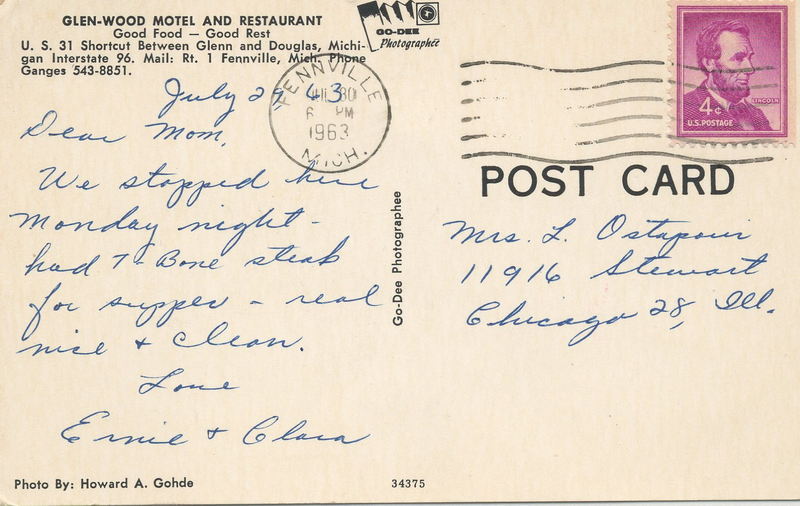 GLEN-WOOD MOTEL AND RESTAURANT
Good Food — Good Rest
U. S. 31 Shortcut Between Glenn and Douglas, Michi-
gan Interstate 96. Mail: Rt. 1 Fennville, Mich. Phone
Ganges 543-8851.
GO-DEE
Photographee
July 29
63
Dear Mom,
We stopped here
Monday night -
had T-Bone steak
for supper - real
nice & clean.
Love
Ernie & Clara
FENNVILLE
JUL 30
6 PM
1963
MICH.
LINCOLN
4¢
U.S. POSTAGE
POST CARD
Mrs. L. Ostapour
11916 Stewart
Chicago 28, Ill.
Go-Dee Photographee
Photo By: Howard A. Gohde
34375